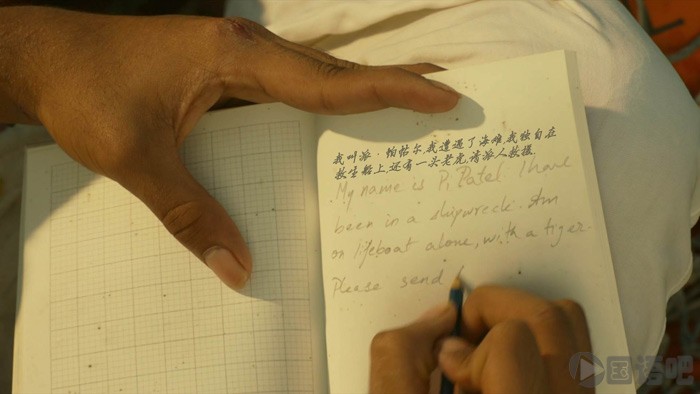 我叫派·帕帖尔,我遭遇了海难,我独自在
救生船上,还有一头老虎,请派人救援.
My name is Pi Patel. I have
been in a shipwreck. I am
on lifeboat alone, with a tiger.
Please send
国语吧